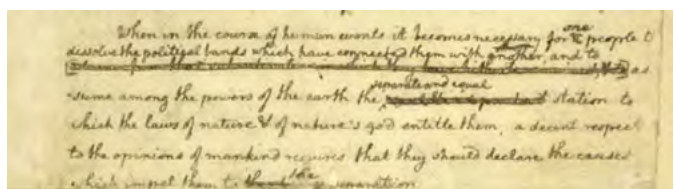 When in the course of human events it becomes necessary for one people to
dissolve the political bands which have connected them with another, and to
as
separate and equal
-sume among the powers of the earth the station to
which the laws of nature & of nature's god entitle them, a decent respect
to the opinions of mankind requires that they should declare the causes
which impel them to the separation